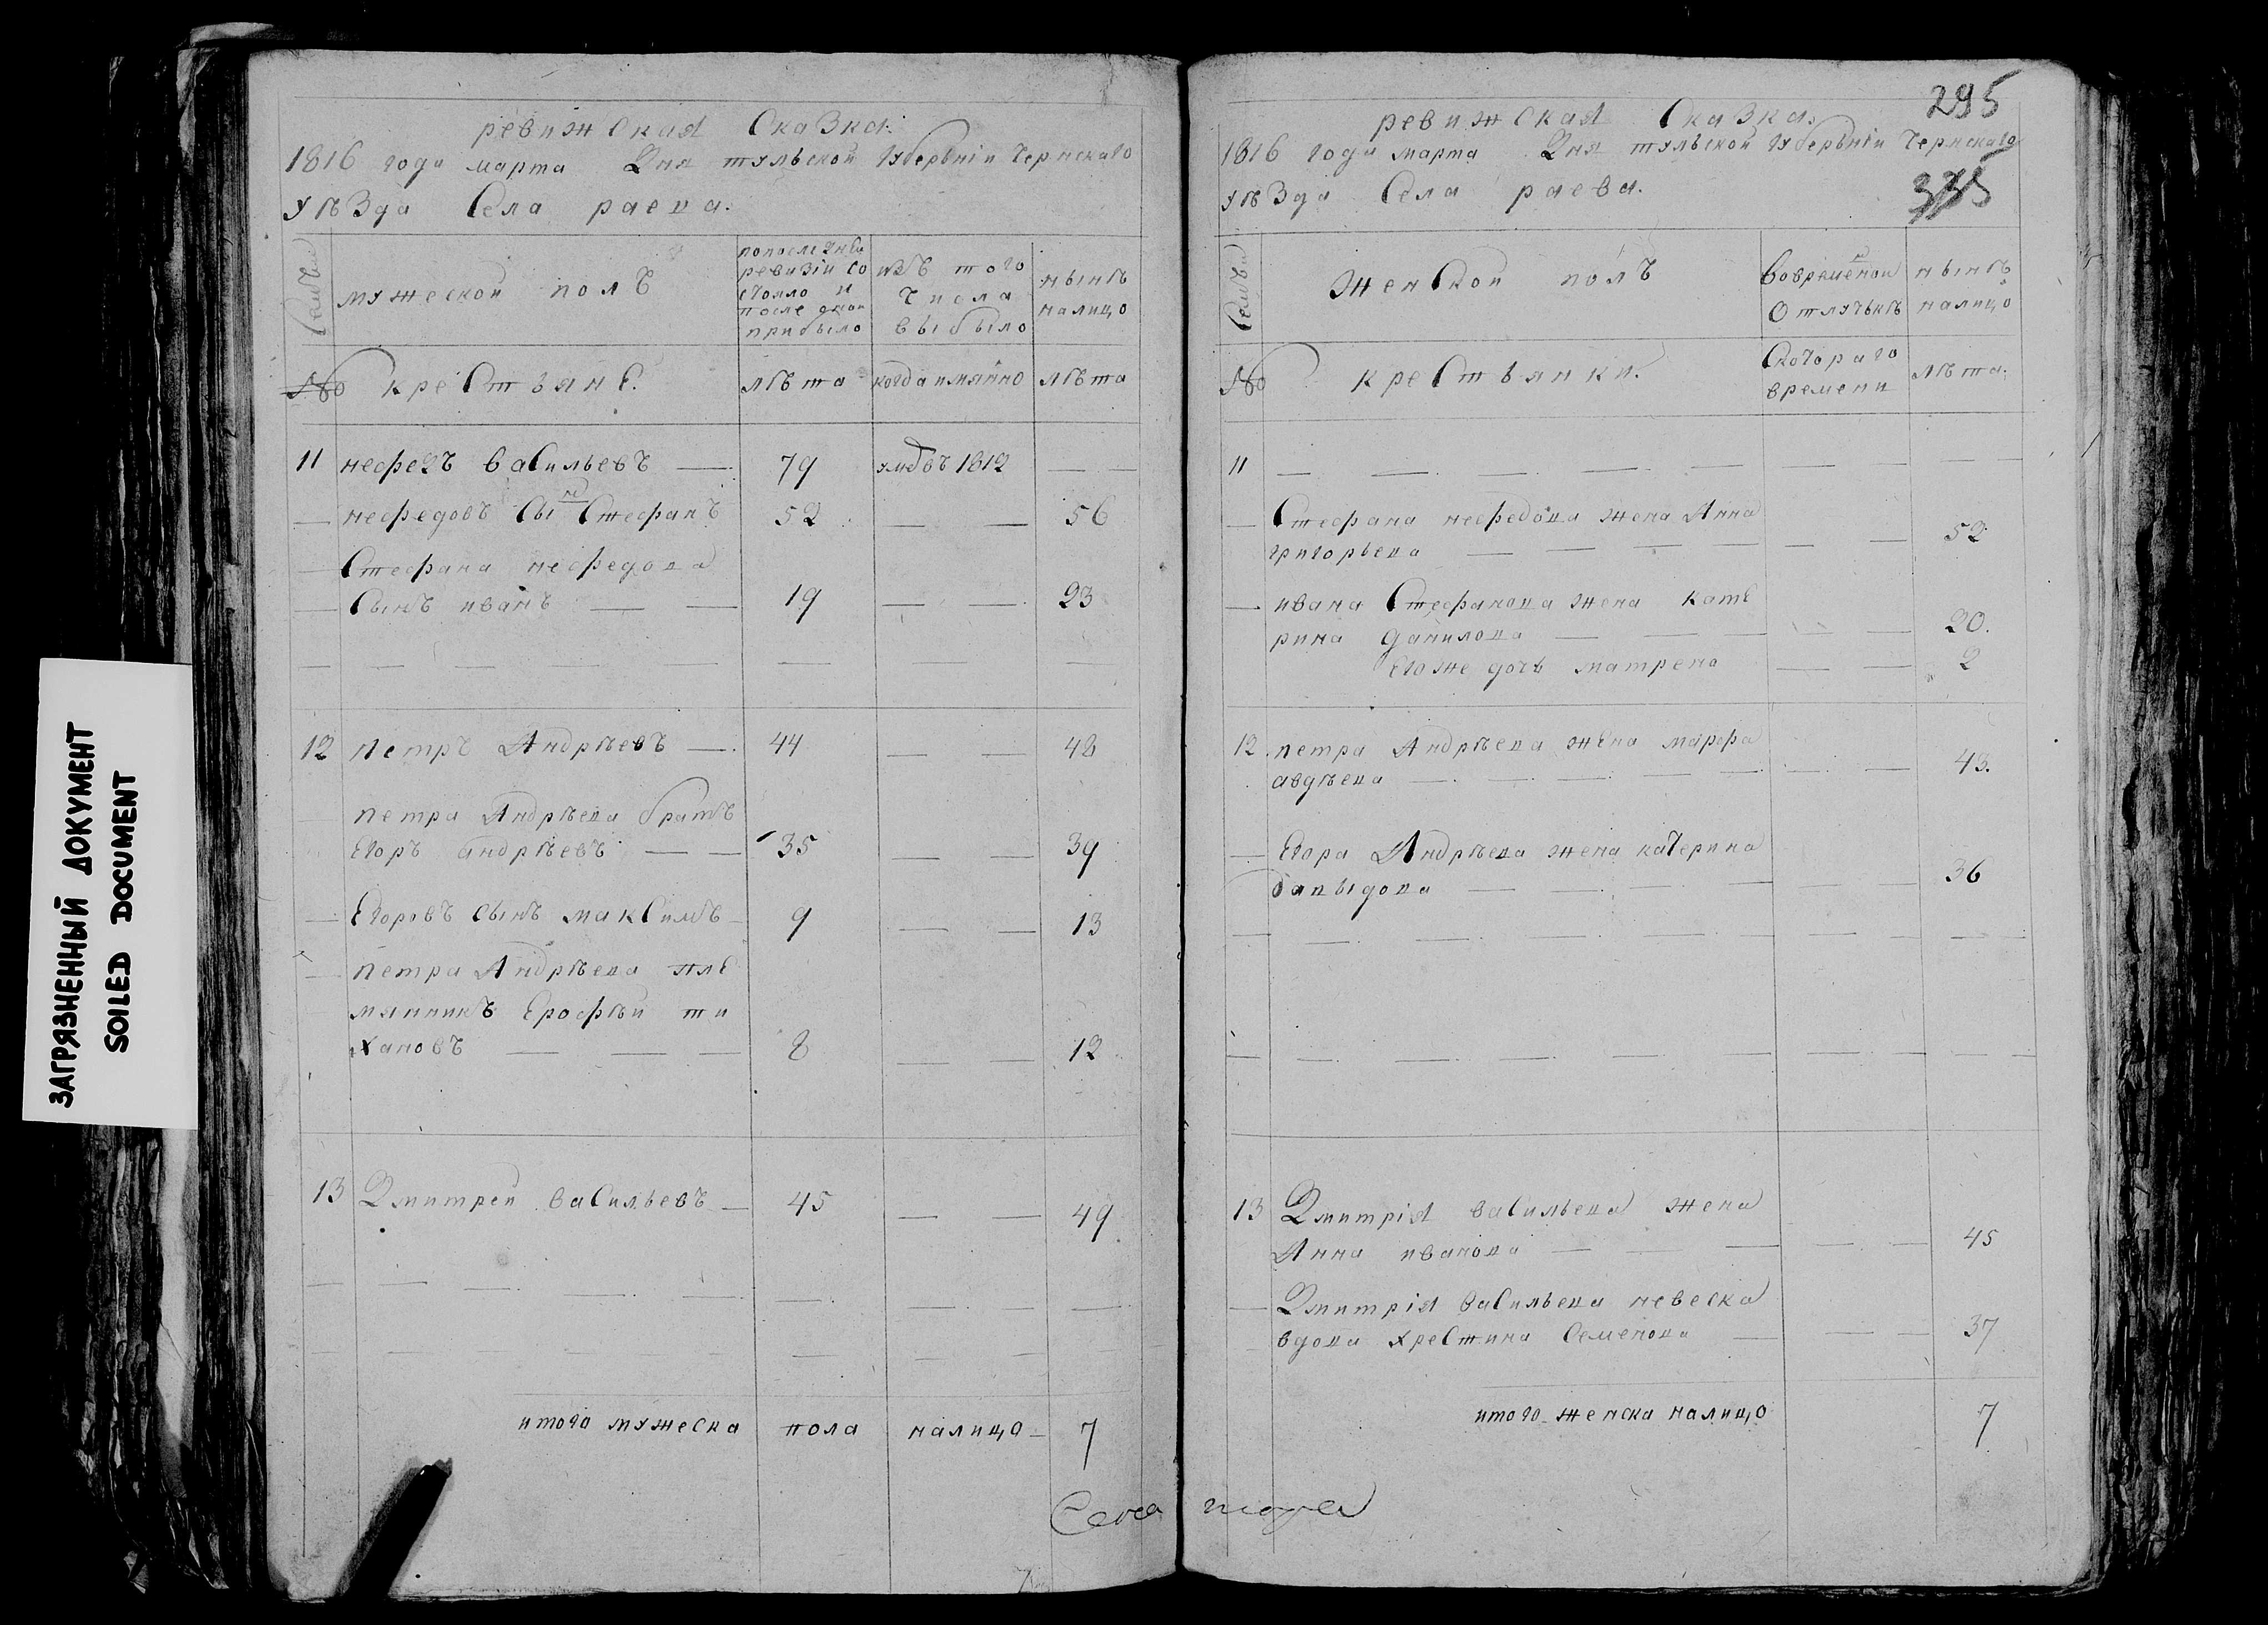 ревижская сказка.
1816 года марта дня тульской губерьніи чернскаго
уѣзда села раева.
семьи
мужеской полъ
попоследней
ревизіи со
стояло и
после оной
прибыло
изъ того
числа
выбыло
нынѣ
налицо
№ крестьяне.
лѣта
когда имянно
лѣта
11 нефедъ васильевъ 79 умъ въ 1812
нефедовъ сынъ стефанъ 52 56
стефана нефедова
сынъ иванъ 19 23
12 петръ андрѣевъ 44 48
петра андрѣева братъ
егоръ андрѣевъ 35 39
егоровъ сынъ максимъ 9 13
петра андрѣева пле
мянникъ ерофѣй ти
хановъ 8 12
13 дмитрей васильевъ 45 49
итого мужеска пола налицо 7
295
ревижская сказка.
1816 года марта дня тульской губерьніи чернскаго
уѣзда села раева.
335
семьи
женской полъ
вовременой
отлучькѣ
нынѣ
налицо
№ крестьянки.
скотораго
времени
лѣта.
11
стефана нефедова жена анна
григорьева 52
ивана стефанова жена кате
рина данилова 20.
егоже дочь матрена 2
12 петра андрѣева жена марфа
авдѣева 43.
егора андрѣева жена катерина
давыдова 36
13 дмитрія васильева жена
анна иванова 45
дмитрія васильева невеска
вдова хрестина семенова 37
итого женска налицо 7
ЗАГРЯЗНЕННЫЙ ДОКУМЕНТ
SOILED DOCUMENT